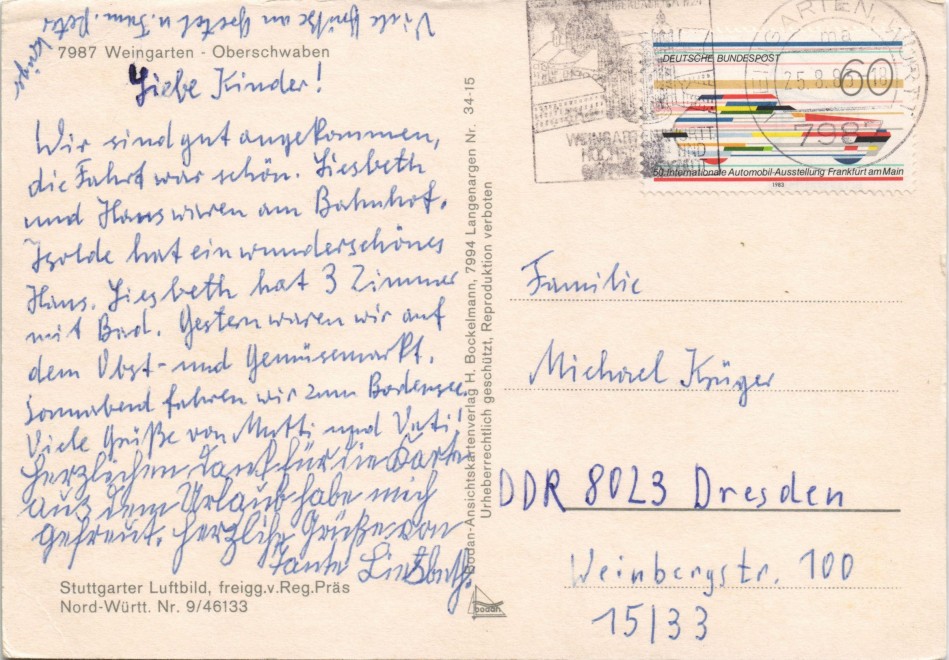 Viele Grüße an Gretel u. Fam. Peter
Krüger
7987 Weingarten - Oberschwaben
Liebe Kinder!
Wir sind gut angekommen,
die Fahrt war schön. Liesbeth
und Hans waren am Bahnhof.
Isolde hat ein wunderschönes
Haus. Liesbeth hat 3 Zimmer
mit Bad. Gestern waren wir auf
dem Obst- und Gemüsemarkt.
Sonnabend fahren wir zum Bodensee.
Viele Grüße von Mutti und Vati!
Herzlichen Dank für die Karte
aus dem Urlaub habe mich
gefreut. Herzliche Grüße von
Tante Liesbeth.
Stuttgarter Luftbild, freigg.v.Reg.Präs
Nord-Württ. Nr. 9/46133
Bodan-Ansichtskartenverlag H. Bockelmann, 7994 Langenargen Nr. 34-15
Urheberrechtlich geschützt, Reproduktion verboten
bodan
DEUTSCHE BUNDESPOST
60
50. Internationale Automobil-Ausstellung Frankfurt am Main
1983
WEINGARTEN, WÜRTT
ma
25.8.83
798
WEINGARTEN WÜRTT
Familie
Michael Krüger
DDR 8023 Dresden
Weinbergstr. 100
15/33